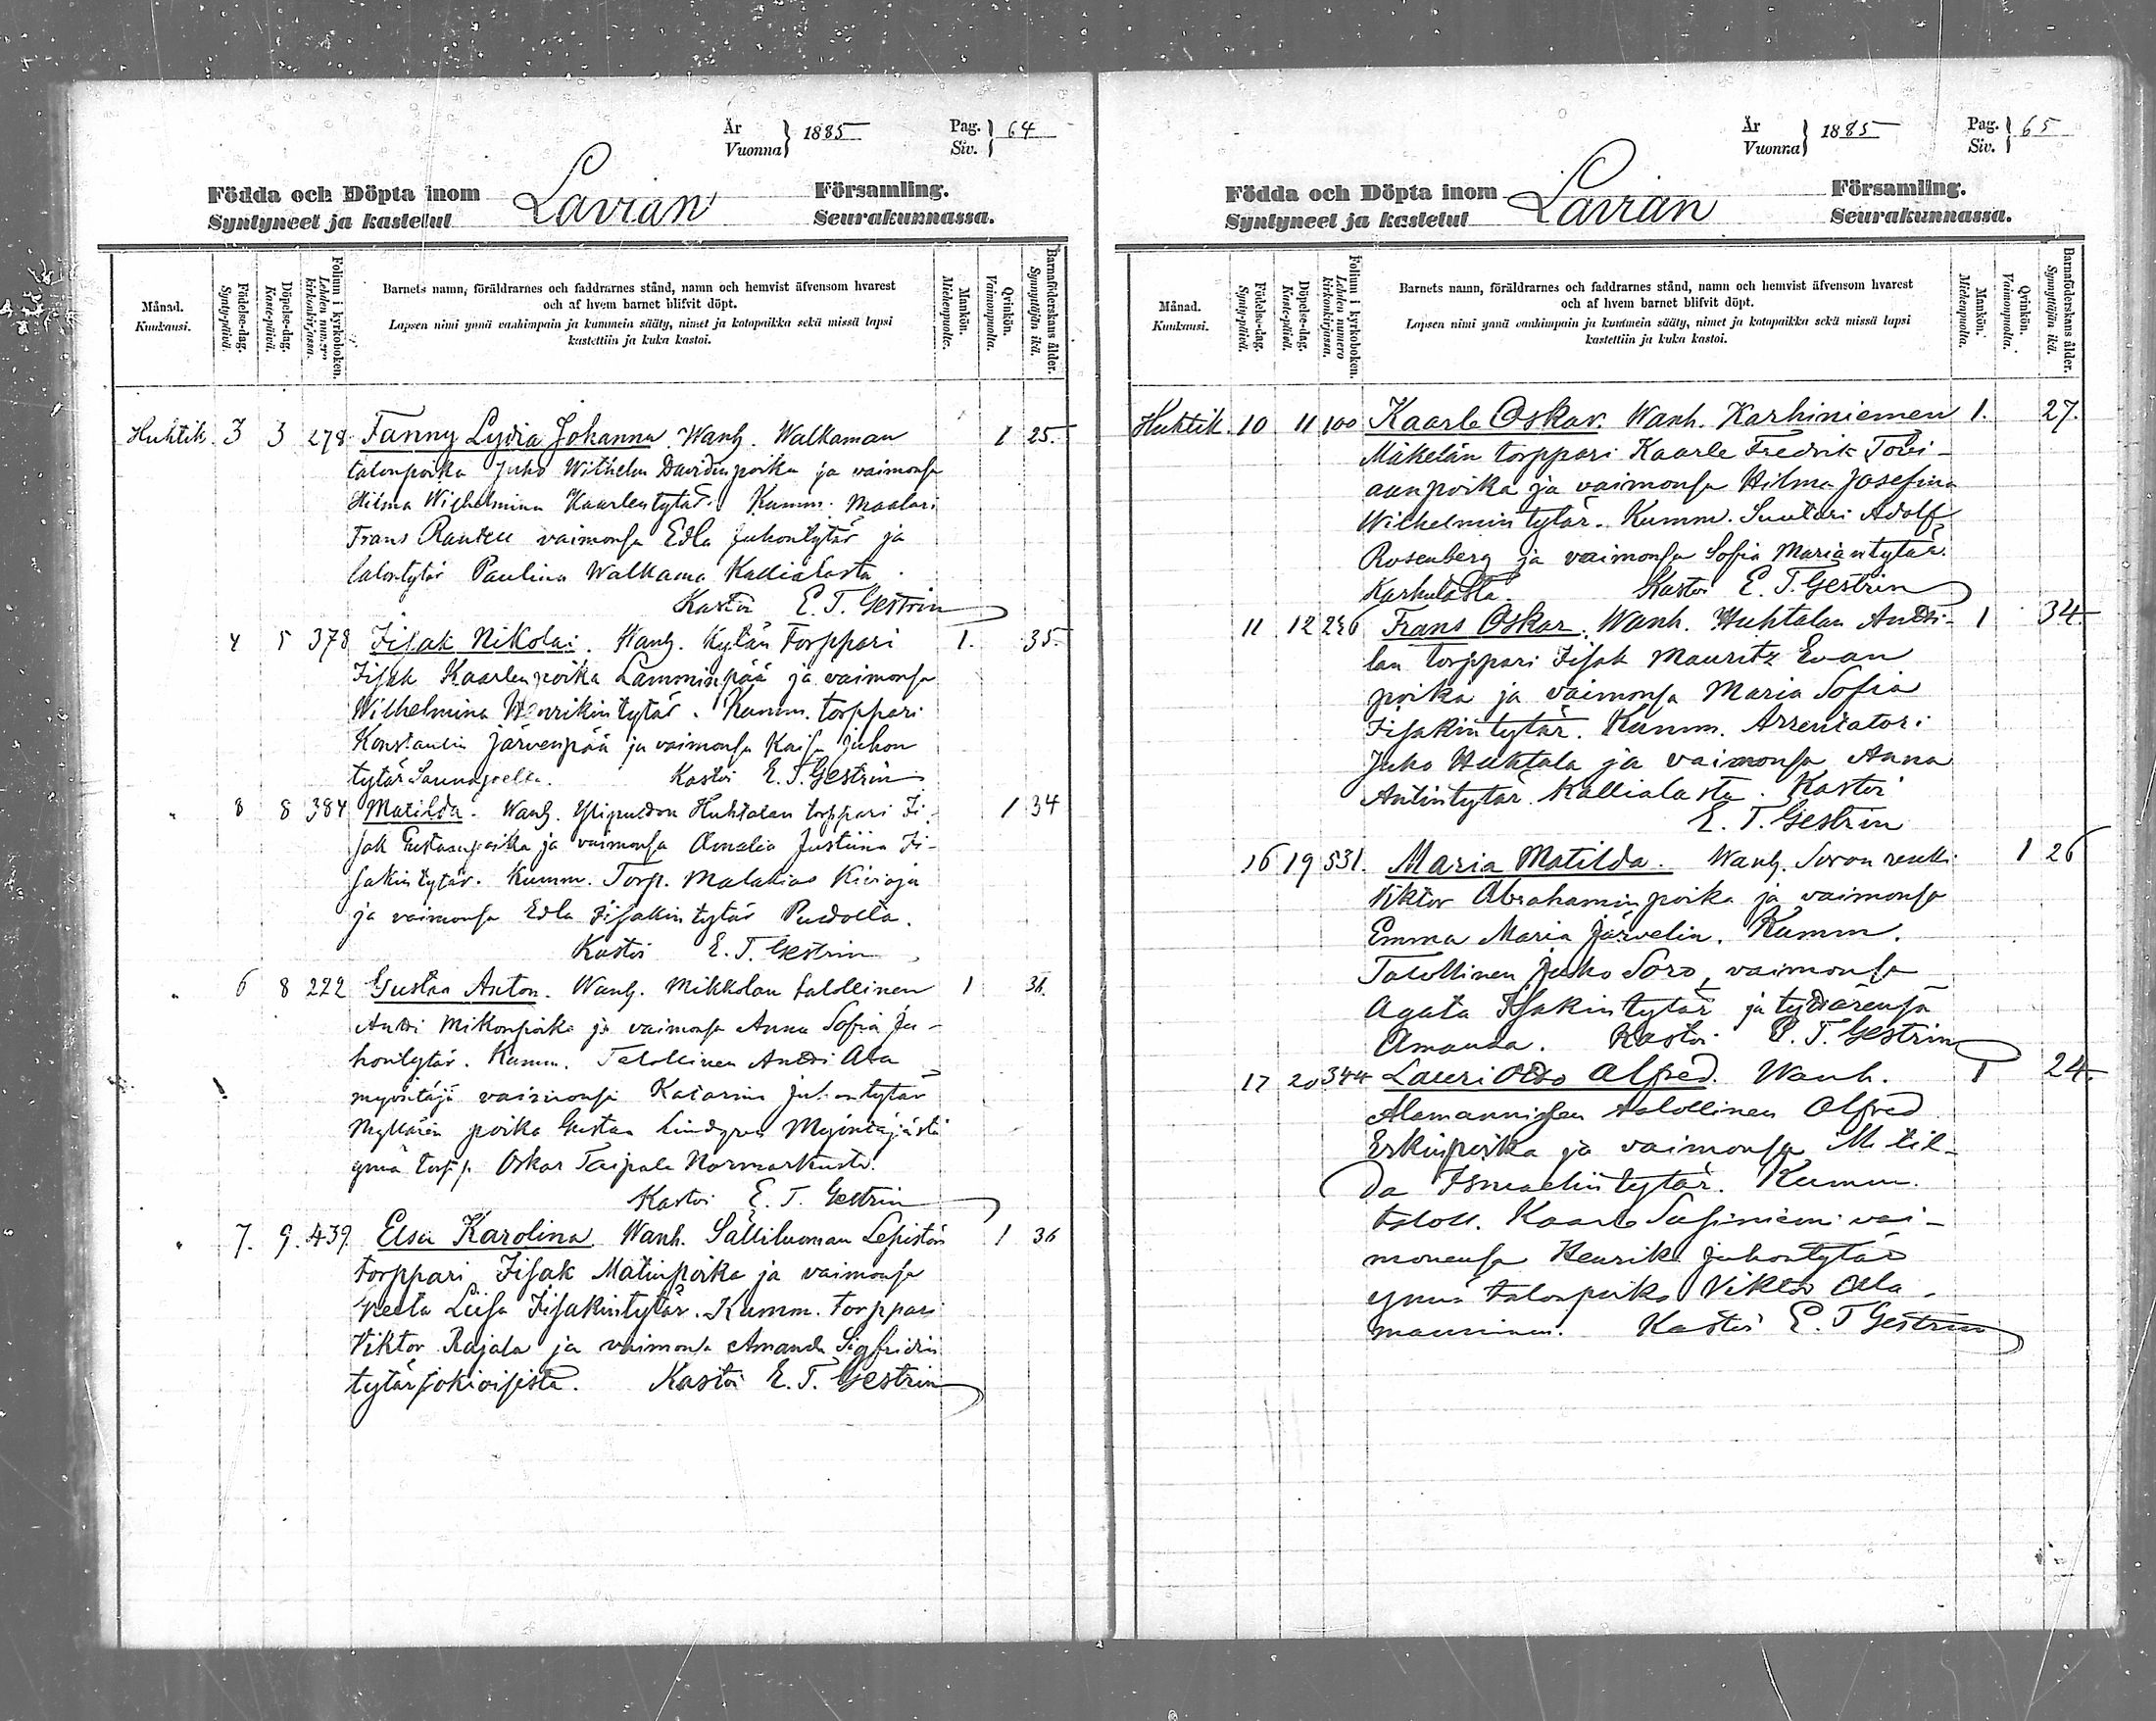 År
Vuonna } 1885 Pag.
Siv. } 64
Födda och Döpta inom Församling.
Syntyneet ja kastetut Lavian Seurakunnassa.
Månad.
Kuukausi.
Födelse-dag.
Synty-päivä.
Döpelse-dag.
Kaste-päivä.
Folium i kyrkoboken.
Lehden numero kirkonkirjassa.
Barnets namn, föräldrarnes och faddrarnes stånd, namn och hemvist äfvensom hvarest
och af hvem barnet blifvit döpt.
Lapsen nimi ynnä vanhimpain ja kummein sääty, nimet ja kotopaikka sekä missä lapsi
kastettiin ja kuka kastoi.
Mankön.
Miehenpuolta.
Qvinkön.
Vaimonpuolta.
Barnaföderskans ålder.
Synnyttäjän ikä.
Huhtik. 3 3 278 Fanny Lydia Johanna. Wanh. Walkaman 1 25.
talonpoika Juho Wilhelm Davidinpoika ja vaimonsa
Hilma Wilhelmina Kaarlentytär. Kumm. Maalari
Frans vaimonsa Edla Juhontytär ja
talontytär Paulina Walkama Kallialasta.
Kastoi E. T. Gestrin
4 5 378 Iisak Nikolai. Wanh. Kytän Torppari 1. 35.
Iisak Kaarlenpoika Lamminpää ja vaimonsa
Wilhelmina Henrikintytär. Kumm. torppari
Konstantin Järvenpää ja vaimonsa Kaisa Juhon
tytär Kastoi E. T. Gestrin
" 8 8 384 Matilda. Wanh. Huhtalan torppari Ii-
sak Kustaanpoika ja vaimonsa Amalia Justiina Ii-
sakintytär. Kumm. Torp. Malakias Kivioja
ja vaimonsa Edla Iisakintytär
Kastoi E. T. Gestrin
" 6 8 222 Gustaa Anton. Wanh. Mikkolan talollinen 1 36.
Antti Mikonpoika ja vaimonsa Anna Sofia Ju-
hontytär. Kumm. Talollinen Antti Ala
myöntäjä vaimonsa Katarina Juhontytär
Myllärin poika Gustaa Lindgren Myöntäjästä
ynnä torpp. Oskar Taipale Normarkusta.
Kastoi E. T. Gestrin
" 7. 9. 439. Elsa Karolina. Wanh. Salliluoman Lepistön 1 36
torppari Iisak Matinpoika ja vaimonsa
Liisa Iisakintytär. Kumm. torppari
Viktor Rajala ja vaimonsa Amanda Sigfridin
tytär Jokioisista. Kastoi E. T. Gestrin
År
Vuonna } 1885 Pag.
Siv. } 65
Födda och Döpta inom Församling.
Syntyneet ja kastetut Lavian Seurakunnassa.
Månad.
Kuukausi.
Födelse-dag.
Synty-päivä.
Döpelse-dag.
Kaste-päivä.
Folium i kyrkoboken.
Lehden numero kirkonkirjassa.
Barnets namn, föräldrarnes och faddrarnes stånd, namn och hemvist äfvensom hvarest
och af hvem barnet blifvit döpt.
Lapsen nimi ynnä vanhimpain ja kummein sääty, nimet ja kotopaikka sekä missä lapsi
kastettiin ja kuka kastoi.
Mankön.
Miehenpuolta.
Qvinkön.
Vaimonpuolta.
Barnaföderskans ålder.
Synnyttäjän ikä.
Huhtik. 10 11 100 Kaarle Oskar. Wanh. Karhiniemen 1. 27.
Mäkelän torppari Kaarle Fredrik Tobi-
aanpoika ja vaimonsa Hilma Josefina
Wilhelmin tytär. Kumm. Suutari Adolf
Rosenberg ja vaimonsa Sofia Mariantytär
Karhulasta. Kastoi E. T. Gestrin
11 12 246 Frans Oskar. Wanh. Huhtalan Antti- 1 34
lan torppari Iisak Mauritz Evan
poika ja vaimonsa Maria Sofia
Iisakintytär. Kumm. Arrentatori
Juho Huhtala ja vaimonsa Anna
Antintytär Kallialasta. Kastoi
E. T. Gestrin
16 19 531. Maria Matilda. Wanh. Soron renki 1 26
Viktor Abrahamin poika ja vaimonsa
Emma Maria Järvelin. Kumm.
Talollinen Juho Soro, vaimonsa
Agata Isakintytär ja tyttärensä
Amanda. Kastoi E. T. Gestrin
17 20 344 Lauri Otto Alfred. Wanh. 1 24.
Alamannisen talollinen Alfred
Erkinpoika ja vaimonsa Matil-
da Ismaelintytär. Kumm.
taloll. Kaarle Susiniemi vai-
monensa Henrika Juhontytär
ynnä talonpoika Viktor Ala-
manninen. Kastoi E. T. Gestrin